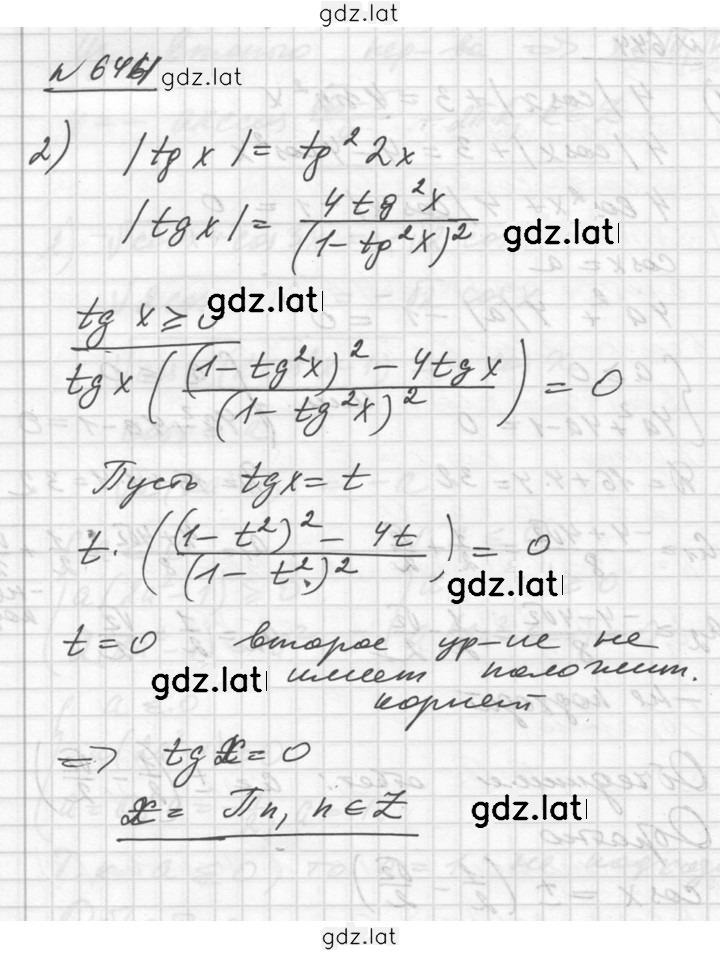 gdz.lat
gdz.lat
2) |tg x| = tg² 2x
|tg x| = 4 tg² x / (1 - tg² x)²
gdz.lat
gdz.lat
tg x ≥ 0
tg x ( ((1 - tg² x)² - 4 tg x) / (1 - tg² x)² ) = 0
Пусть tg x = t
t · ( ((1 - t²)² - 4t) / (1 - t²)² ) = 0
gdz.lat
t = 0 второе ур-ие не
имеет положит.
gdz.lat
корней
=> tg x = 0
x = Пn, n ∈ Z
gdz.lat
gdz.lat